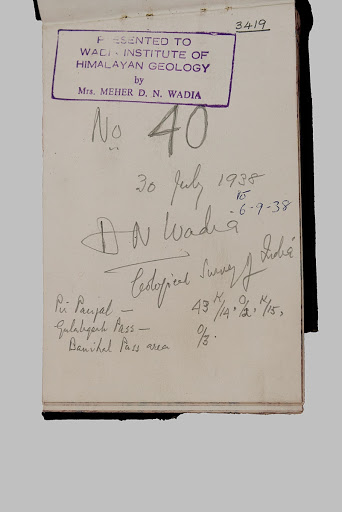 3419
PRESENTED TO
WADIA INSTITUTE OF
HIMALAYAN GEOLOGY
by
Mrs. MEHER D. N. WADIA
No 40
30 July 1938
to
6-9-38
D N Wadia
Geological Survey of India
Pir Panjal — 43 K/14, O/2, K/15,
Gulabgarh Pass — O/3.
Banihal Pass area